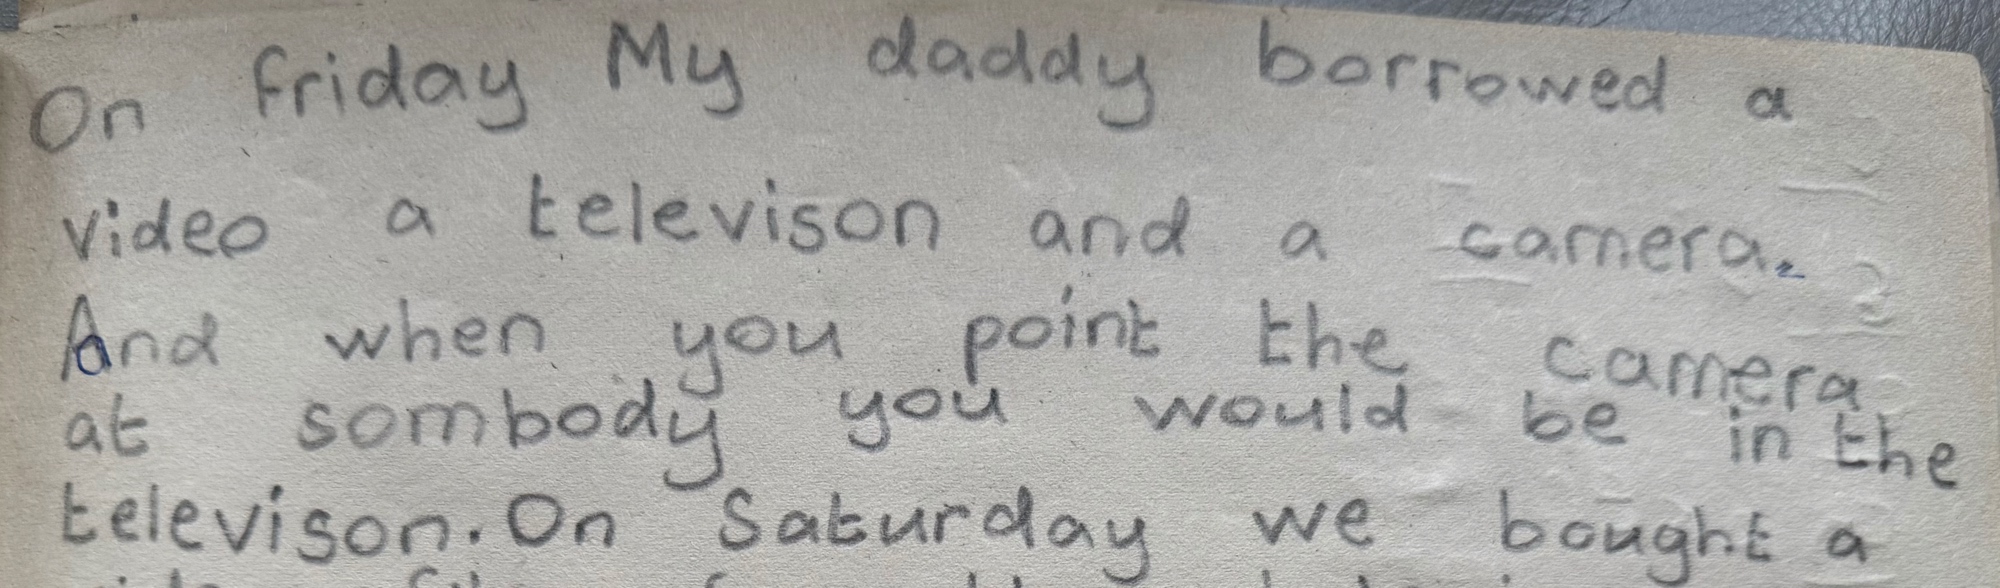 On friday My daddy borrowed a
video a televison and a camera.
And when you point the camera
at sombody you would be in the
televison. On Saturday we bought a